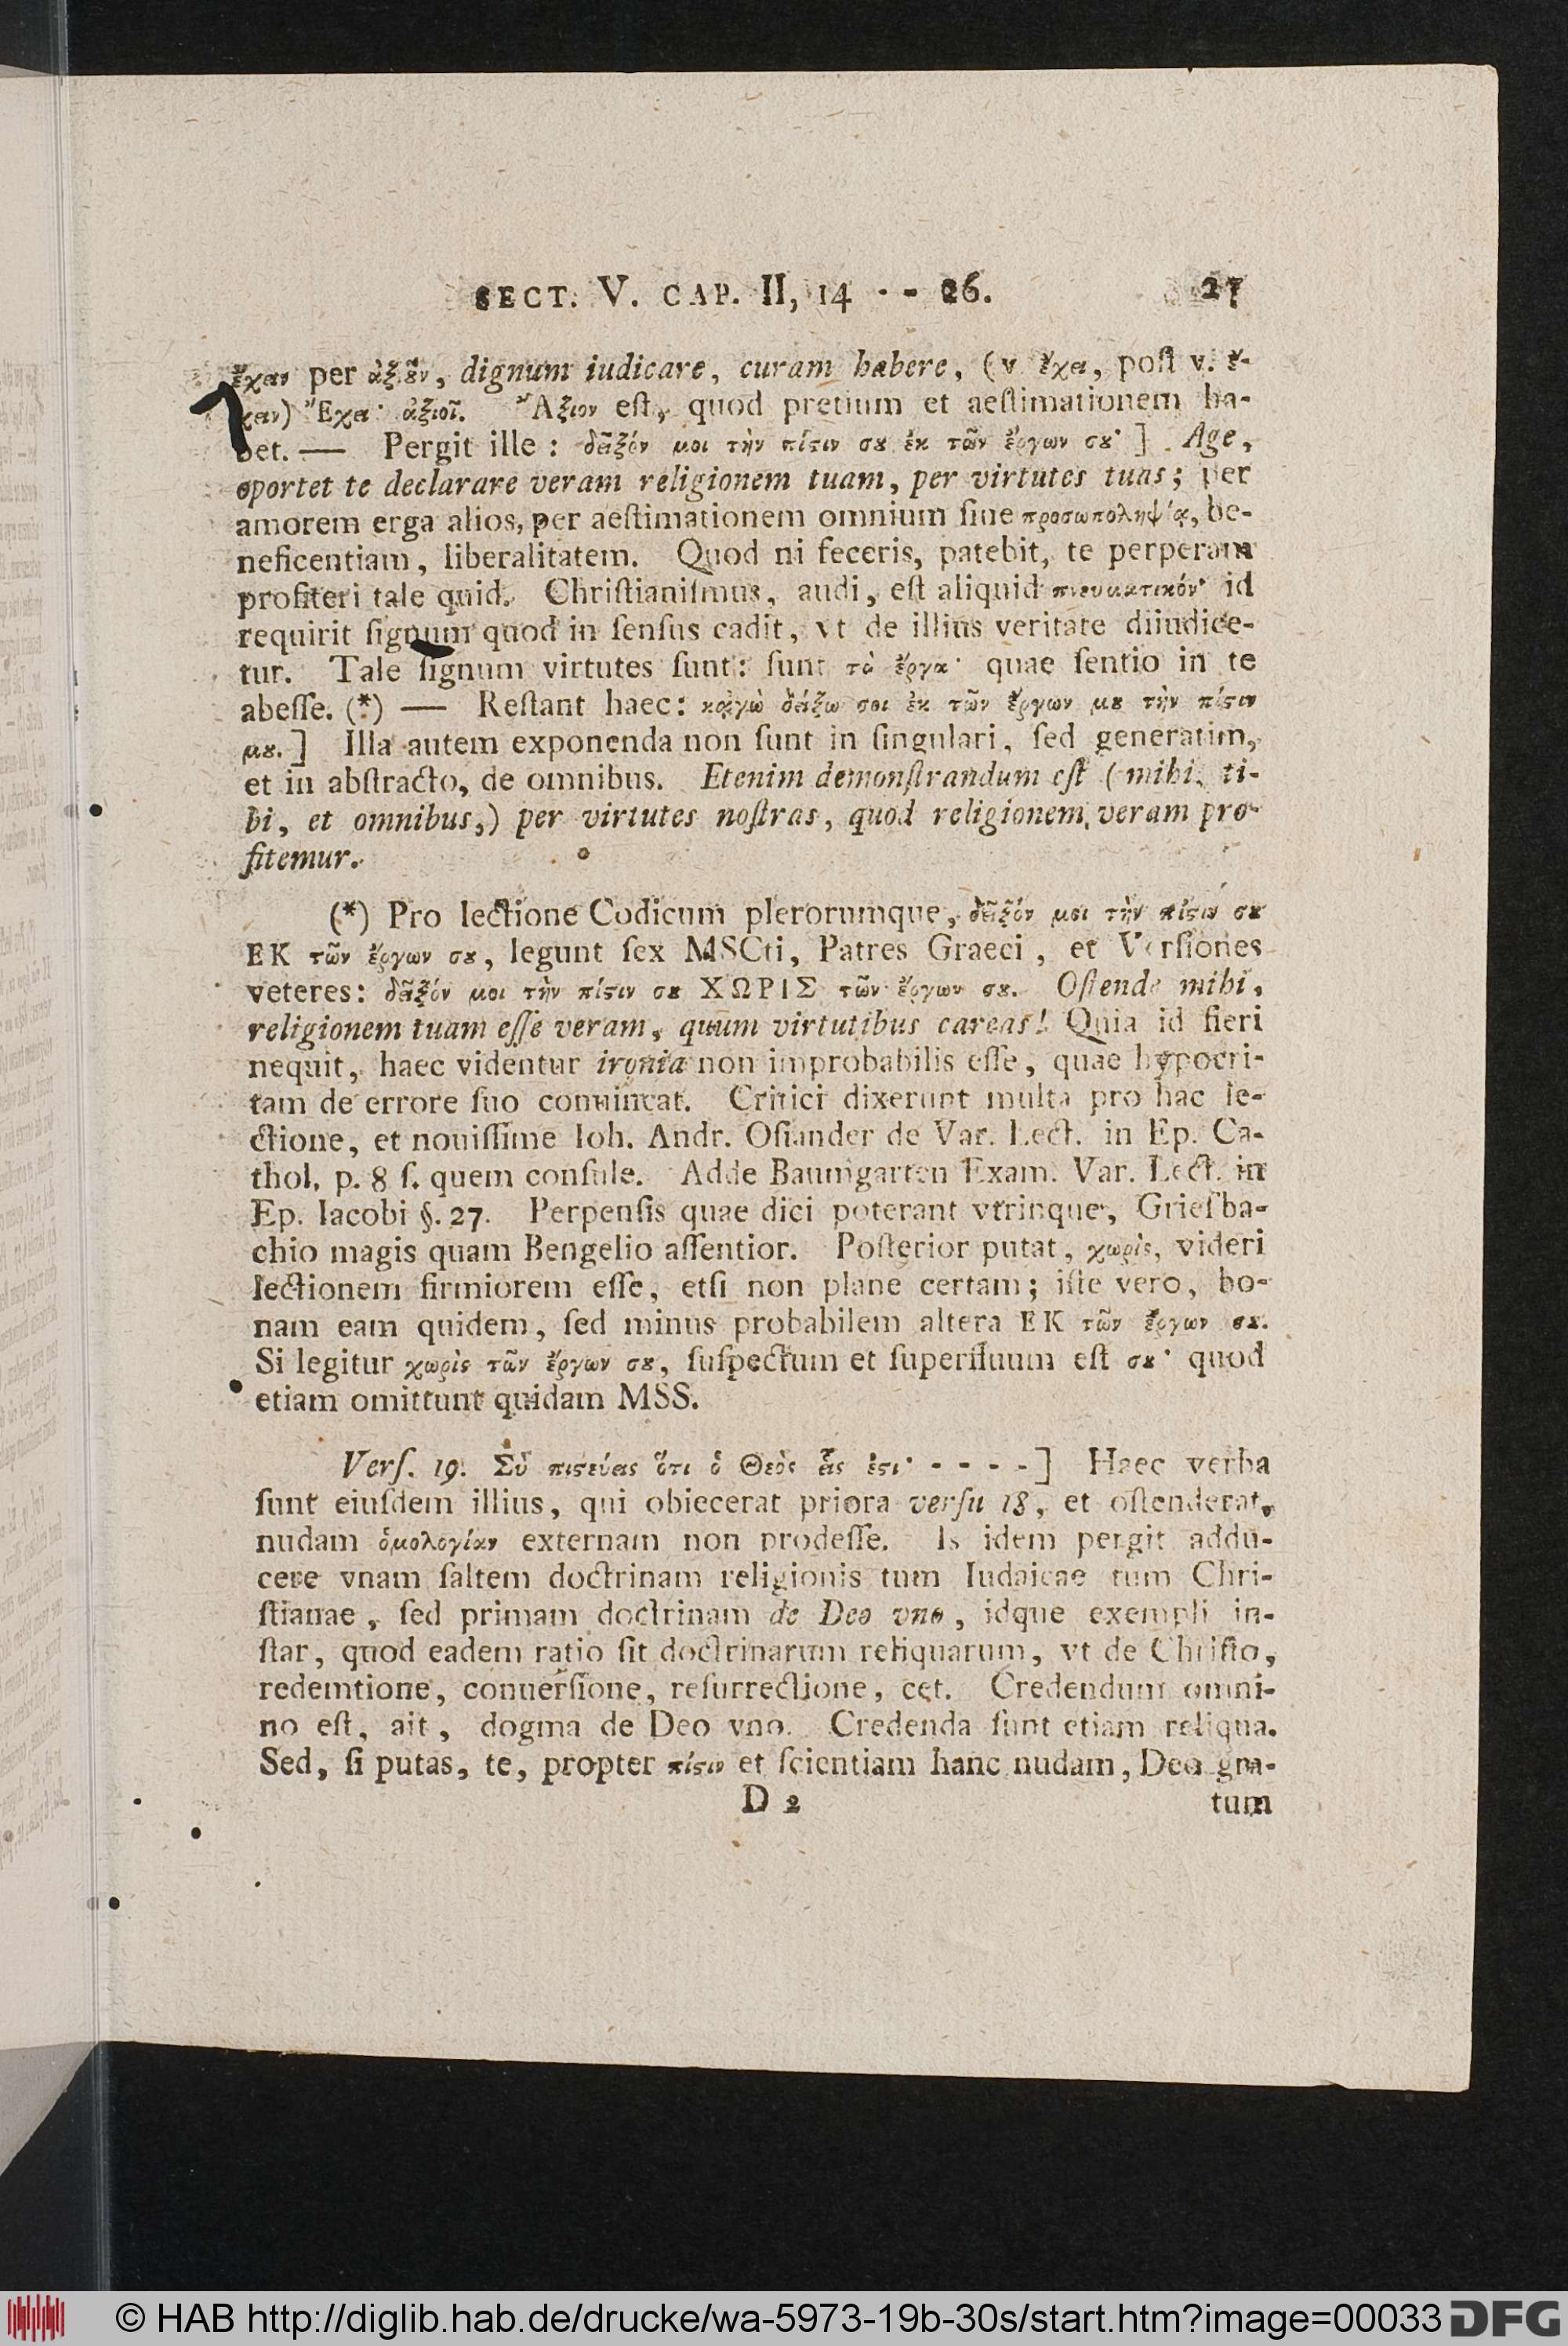 SECT. V. CAP. II, 14 - - 26. 27
ἔχειν per ἀξιȣ͂ν, dignum iudicare, curam habere, (v. ἔχει, poſt v. ἔ-
χειν) Ἔχει· ἀξιοῖ. Ἄξιον eſt, quod pretium et aeſtimationem ha-
bet. — Pergit ille: δεῖξόν μοι τὴν πίϛιν σȣ ἐκ τῶν ἔργων σȣ·] Age,
oportet te declarare veram religionem tuam, per virtutes tuas; per
amorem erga alios, per aeſtimationem omnium ſine προσωποληψίᾳ, be-
neficentiam, liberalitatem. Quod ni feceris, patebit, te perperam
profiteri tale quid. Chriſtianiſmus, audi, eſt aliquid πνευματικόν· id
requirit ſignum quod in ſenſus cadit, vt de illius veritate diiudice-
tur. Tale ſignum virtutes ſunt: ſunt τὰ ἔργα· quae ſentio in te
abeſſe. (*) — Reſtant haec: κᾀγὼ δείξω σοι ἐκ τῶν ἔργων μȣ τὴν πίϛιν
μȣ.] Illa autem exponenda non ſunt in ſingulari, ſed generatim,
et in abſtracto, de omnibus. Etenim demonſtrandum eſt (mihi, ti-
bi, et omnibus,) per virtutes noſtras, quod religionem veram pro-
fitemur.
(*) Pro lectione Codicum plerorumque, δεῖξόν μοι τὴν πίϛιν σȣ
ΕΚ τῶν ἔργων σȣ, legunt ſex MSCti, Patres Graeci, et Verſiones
veteres: δεῖξόν μοι τὴν πίϛιν σȣ ΧΩΡΙΣ τῶν ἔργων σȣ. Oſtende mihi,
religionem tuam eſſe veram, quum virtutibus careas! Quia id fieri
nequit, haec videntur ironia non improbabilis eſſe, quae hypocri-
tam de errore ſuo conuincat. Critici dixerunt multa pro hac le-
ctione, et nouiſſime Ioh. Andr. Oſiander de Var. Lect. in Ep. Ca-
thol. p. 8 ſ. quem conſule. Adde Baumgarten Exam. Var. Lect. in
Ep. Iacobi §. 27. Perpenſis quae dici poterant vtrinque, Griesba-
chio magis quam Bengelio aſſentior. Poſterior putat, χωρὶς, videri
lectionem firmiorem eſſe, etſi non plane certam; iſte vero, bo-
nam eam quidem, ſed minus probabilem altera ΕΚ τῶν ἔργων σȣ.
Si legitur χωρὶς τῶν ἔργων σȣ, ſuſpectum et ſuperfluum eſt σȣ· quod
etiam omittunt quidam MSS.
Verſ. 19. Σὺ πιϛεύεις ὅτι ὁ Θεὸς εἷς ἐϛι· - - - -] Haec verba
ſunt eiuſdem illius, qui obiecerat priora verſu 18, et oſtenderat,
nudam ὁμολογίαν externam non prodeſſe. Is idem pergit addu-
cere vnam ſaltem doctrinam religionis tum Iudaicae tum Chri-
ſtianae, ſed primam doctrinam de Deo vno, idque exempli in-
ſtar, quod eadem ratio ſit doctrinarum reliquarum, vt de Chriſto,
redemtione, conuerſione, reſurrectione, cet. Credendum omni-
no eſt, ait, dogma de Deo vno. Credenda ſunt etiam reliqua.
Sed, ſi putas, te, propter πίϛιν et ſcientiam hanc nudam, Deo gra-
D 2 tum
© HAB http://diglib.hab.de/drucke/wa-5973-19b-30s/start.htm?image=00033 DFG